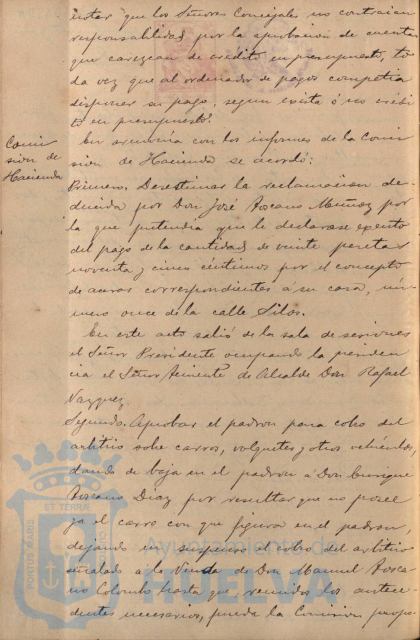 notar que los Señores Concejales no contraian
responsabilidad por la aprobacion de cuentas
que carezcan de crédito en presupuesto, to
da vez que al ordenador de pagos competia
disponer su pago, segun exista ó no crédi
to en presupuesto.
Comi
sion de
Hacienda
En armonía con los informes de la Comi
sion de Hacienda se acordó:
Primero. Desestimar la reclamacion de
ducida por Don José Toscano Muñoz por
la que pretendia que le declarase exento
del pago de la cantidad de veinte pesetas
noventa y cinco céntimos por el concepto
de aceras correspondientes a su casa, nú-
mero once de la calle Silos.
En este acto salió de la sala de sesiones
el Señor Presidente ocupando la presiden
cia el Señor Teniente de Alcalde Don Rafael
Vazquez.
Segundo. Aprobar el padron para cobro del
arbitrio sobre carros, volquetes y otros vehículos,
dando de baja en el padron á Don Enrique
Toscano Diaz por resultar que no posee
ya el carro con que figura en el padron
dejando en suspenso el cobro del arbitrio
señalado a la Viuda de Don Manuel Tosca
no Colombo hasta que reunidos los antece
dentes necesarios, pueda la Comision propo
ET TERRÆ
PORTUS MARIS
Ayuntamiento de
HUELVA